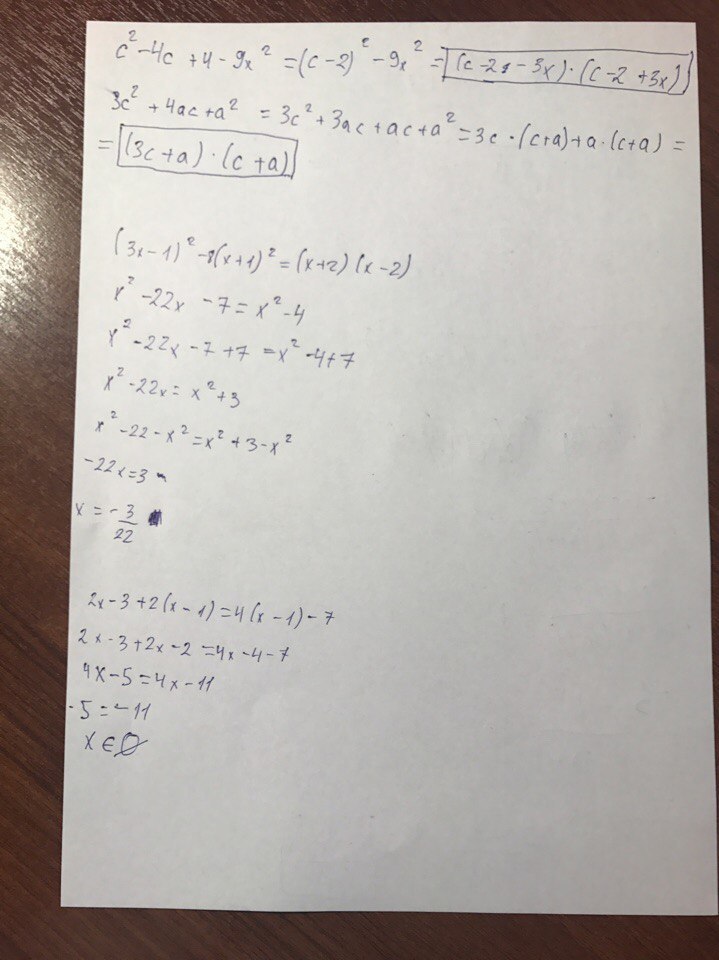 c² - 4c + 4 - 9x² = (c - 2)² - 9x² = (c - 2 - 3x) · (c - 2 + 3x)
3c² + 4ac + a² = 3c² + 3ac + ac + a² = 3c · (c + a) + a · (c + a) =
= (3c + a) · (c + a)
(3x - 1)² - 8(x + 1)² = (x + 2)(x - 2)
x² - 22x - 7 = x² - 4
x² - 22x - 7 + 7 = x² - 4 + 7
x² - 22x = x² + 3
x² - 22 - x² = x² + 3 - x²
-22x = 3
x = -3/22
2x - 3 + 2(x - 1) = 4(x - 1) - 7
2x - 3 + 2x - 2 = 4x - 4 - 7
4x - 5 = 4x - 11
-5 = -11
x ∈ ∅